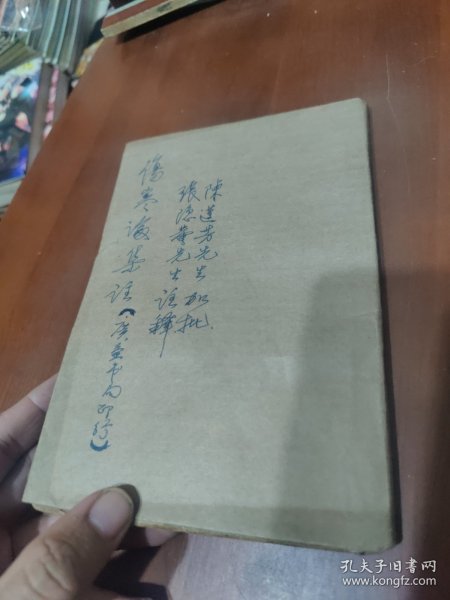 陳蓮芳先生加批
張隱菴先生註釋
傷寒論集註（廣益书局印行）
孔夫子旧书网
www.kongfz.com